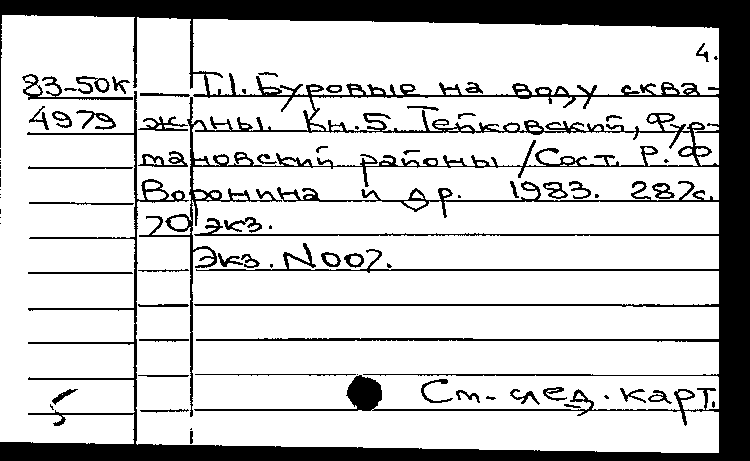 4.
83-50к Т.1. Буровые на воду сква-
4979 жины. Кн.5. Тейковский, Фур-
мановский районы /Сост. Р.Ф.
Воронина и др. 1983. 287с.
70 экз.
Экз. N007.
5 См. след. карт.